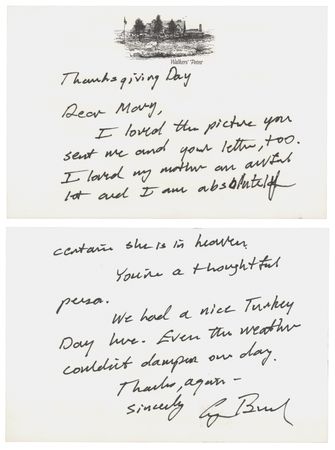 Walkers' Point
Thanksgiving Day
Dear Mary,
I loved the picture you
sent me and your letter, too.
I loved my mother an awful
lot and I am absolutely
certain she is in heaven.
You're a thoughtful
person.
We had a nice Turkey
Day here. Even the weather
couldn't dampen our day.
Thanks, again -
Sincerely G Bush